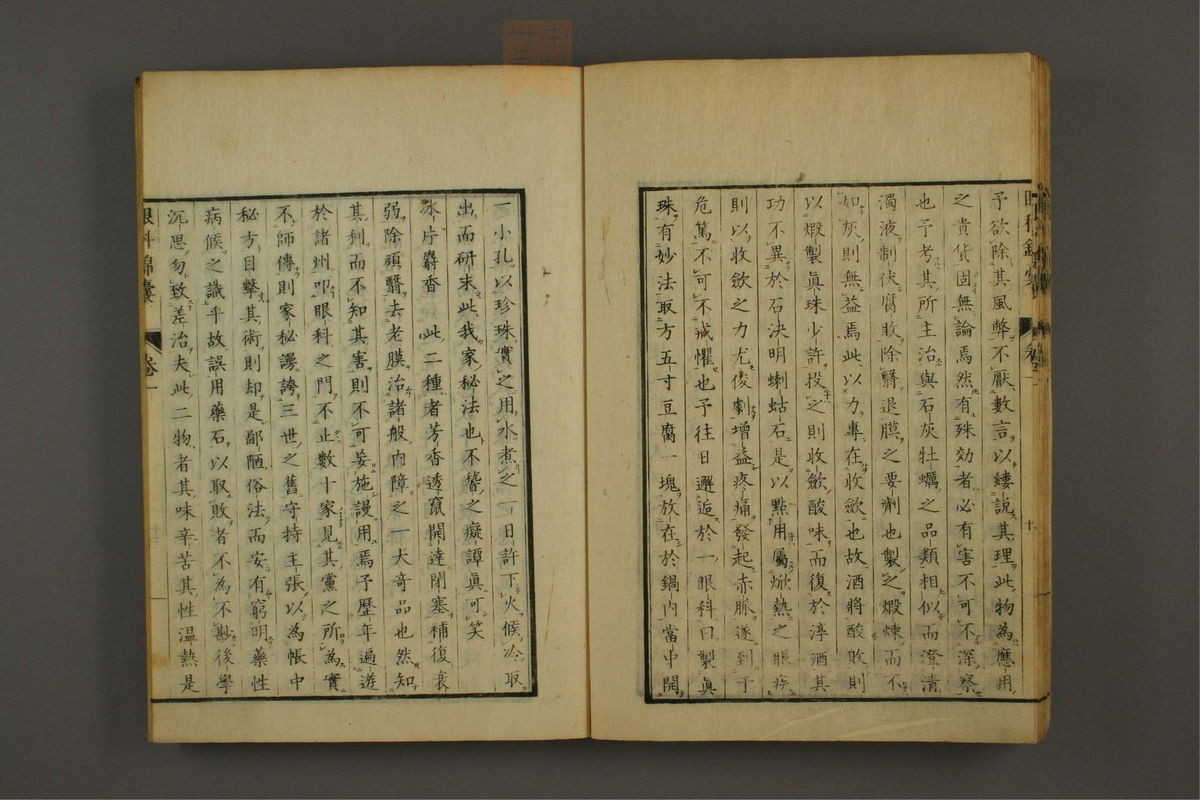 予欲除其風弊不厭數言以縷説其理此物為應用
之貴貨固無論焉然有殊効者必有害不可不深察
也予考其所主治與石灰牡蠣之品類相似而澄清
濁液制伏腐敗除翳退膜之要劑也製之煅煉而不
如灰則無益焉此以力專在收歛也故酒將酸敗則
以煅製眞珠少許投之則收歛酸味而復於淳酒其
功不異於石決明蝲蛄石是以點用屬焮熱之眼疾
則以收歛之力尤俊劇增益疼痛發起赤脈遂到于
危篤不可不戒懼也予往日邂逅於一眼科曰製眞
珠有妙法取方五寸豆腐一塊放在於鍋内當中開
一小孔以珍珠實之用水煮之一日許下火候冷取
出而研末此我家秘法也不啻之癡譚眞可笑
氷片麝香 此二種者芳香透竄開達閉塞補復衰
弱除頑翳去老膜治諸般内障之一大奇品也然知
其利而不知其害則不可妄施謾用焉予歷年遍遊
於諸州叩眼科之門不止數十家見其黨之所為實
不師傳則家秘謾誇三世之舊守持主張以為帳中
秘方目擊其術則却是鄙陋俗法而安有窮明藥性
病候之識乎故誤用藥石以取敗者不為不尠後學
沉思勿致差治夫此二物者其味辛苦其性温熱是
眼科錦囊 卷一